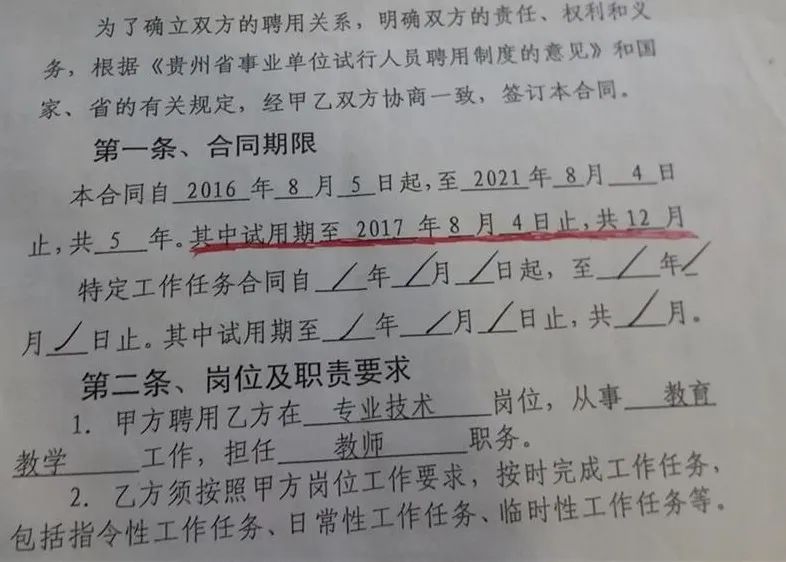 为了确立双方的聘用关系，明确双方的责任、权利和义
务，根据《贵州省事业单位试行人员聘用制度的意见》和国
家、省的有关规定，经甲乙双方协商一致，签订本合同。
第一条、合同期限
本合同自 2016 年 8 月 5 日起，至 2021 年 8 月 4 日
止，共 5 年。其中试用期至 2017 年 8 月 4 日止，共 12 月
特定工作任务合同自 / 年 / 月 / 日起，至 / 年 /
月 / 日止。其中试用期至 / 年 / 月 / 日止，共 / 月。
第二条、岗位及职责要求
1. 甲方聘用乙方在 专业技术 岗位，从事 教育
教学 工作，担任 教师 职务。
2. 乙方须按照甲方岗位工作要求，按时完成工作任务，
包括指令性工作任务、日常性工作任务、临时性工作任务等。